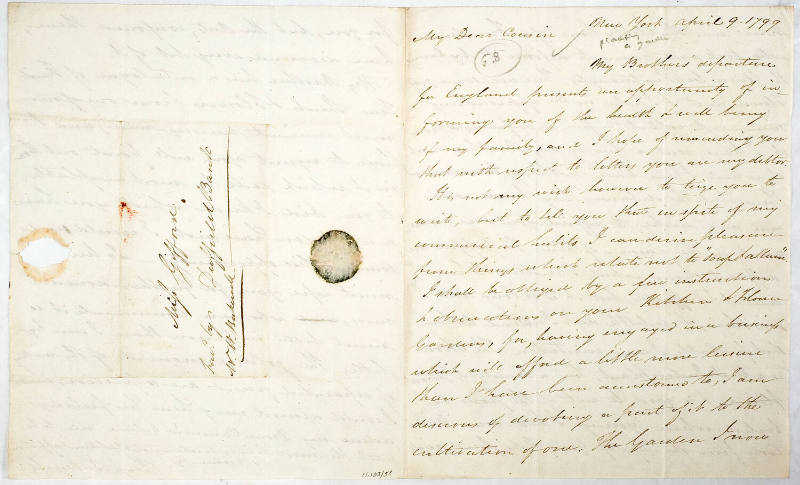 Miss Gifford.
Duffield Bank
My Dear Cousin
New York April 9. 1799
planting
a garden
58
My Brother's departure
for England presents an opportunity of in-
forming you of the health & well being
of my family, and I hope of reminding you
that with respect to letters you are my debtor.
It is not my wish however to teize you to
write, but to tell you that in spite of my
commercial habits I can derive pleasure
from things which relate not to soap & allum.
I shall be obliged by a few instruction
& observations on your Kitchen & Flower
Gardens, for, having engaged in a business
which will afford a little more leisure
than I have been accustomed to, I am
desirous of devoting a part of it to the
cultivation of one. The Garden I now